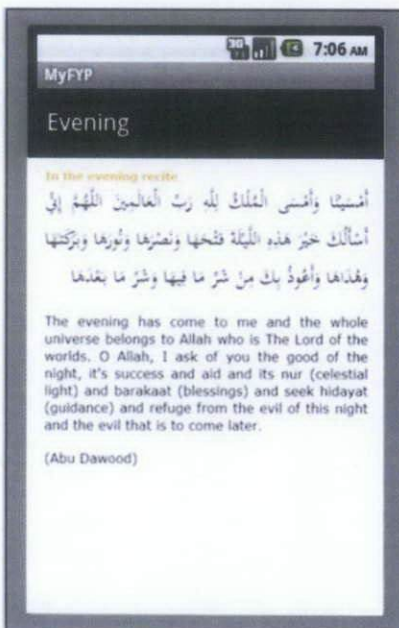 3G 7:06 AM
MyFYP
Evening
In the evening recite
أَمْسَيْنَا وَأَمْسَى الْمُلْكُ لِلَّهِ رَبِّ الْعَالَمِينَ اللَّهُمَّ إِنِّي
أَسْأَلُكَ خَيْرَ هَذِهِ اللَّيْلَةِ فَتْحَهَا وَنَصْرَهَا وَنُورَهَا وَبَرَكَتَهَا
وَهُدَاهَا وَأَعُوذُ بِكَ مِنْ شَرِّ مَا فِيهَا وَشَرِّ مَا بَعْدَهَا
The evening has come to me and the whole
universe belongs to Allah who is The Lord of the
worlds. O Allah, I ask of you the good of the
night, it's success and aid and its nur (celestial
light) and barakaat (blessings) and seek hidayat
(guidance) and refuge from the evil of this night
and the evil that is to come later.
(Abu Dawood)